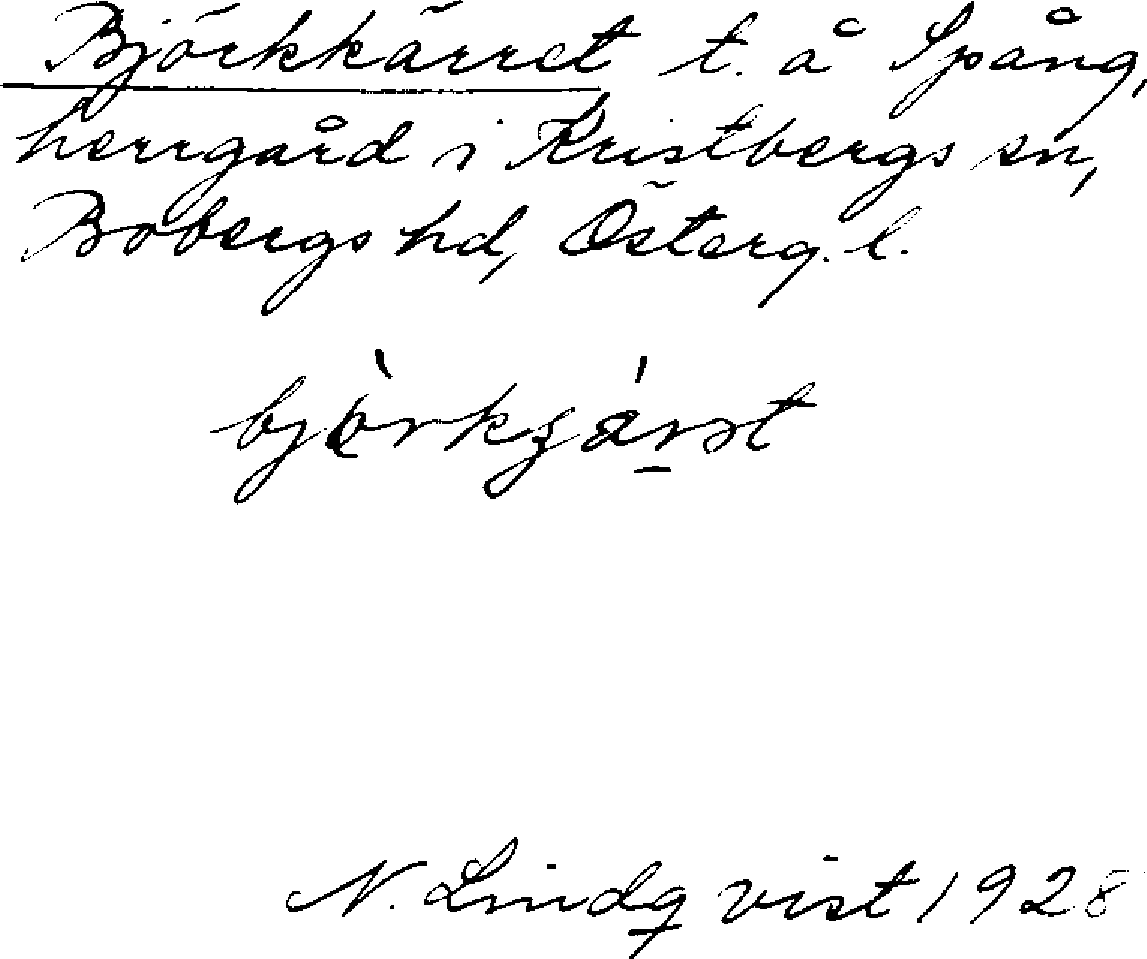 Björkkärret t. å Spång,
herrgård i Kristbergs sn,
Bobergs hd, Österg. l.
N. Lindqvist 1928